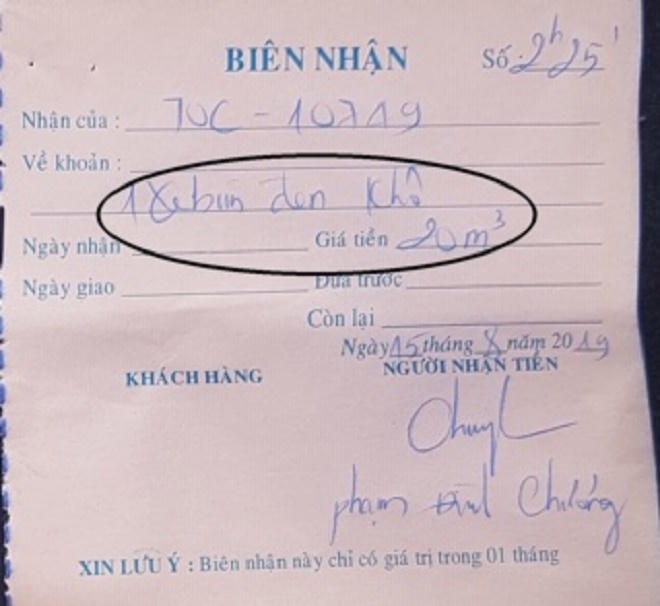 BIÊN NHẬN Số: 2h25'
Nhận của : 70C - 10719
Về khoản :
1 Xe bùn đen khô
Ngày nhận Giá tiền 20 m³
Ngày giao Đưa trước
Còn lại
Ngày 15 tháng 8 năm 2019
KHÁCH HÀNG NGƯỜI NHẬN TIỀN
phạm Chương
XIN LƯU Ý : Biên nhận này chỉ có giá trị trong 01 tháng